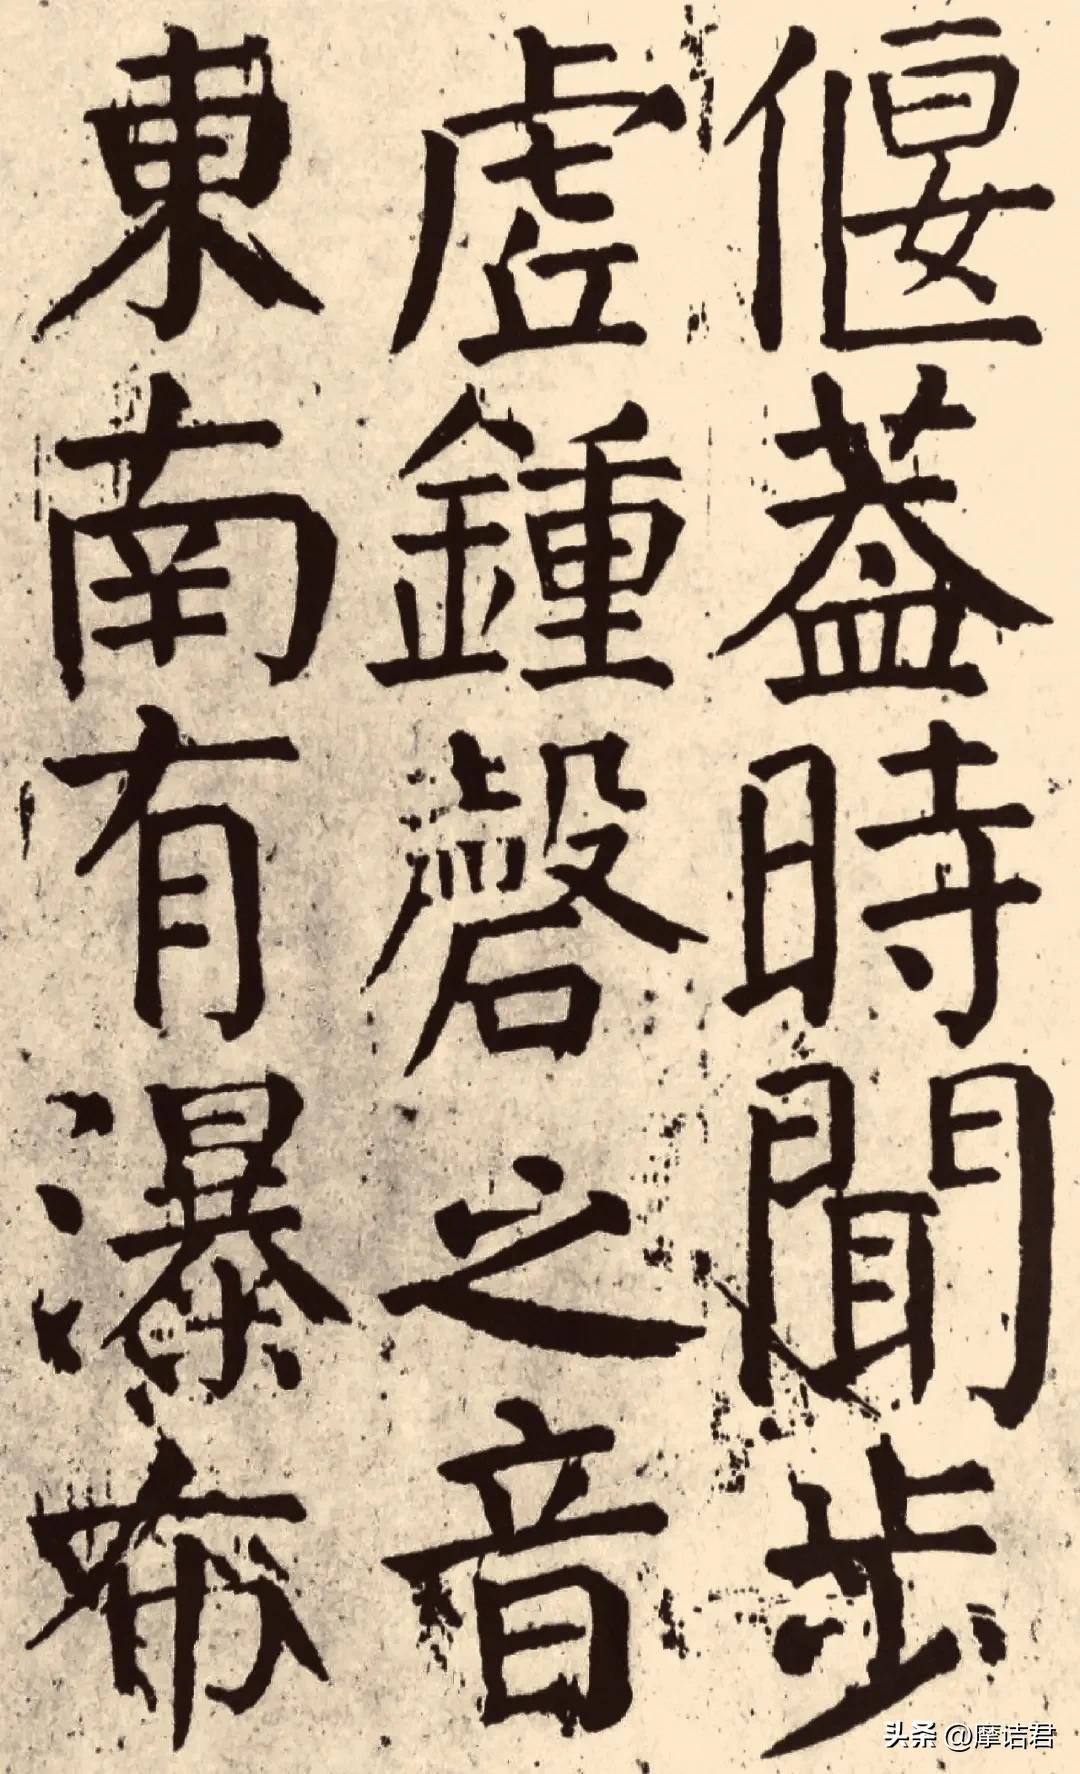 偃蓋時聞步
虛鍾磬之音
東南有瀑布
头条 @摩诘君